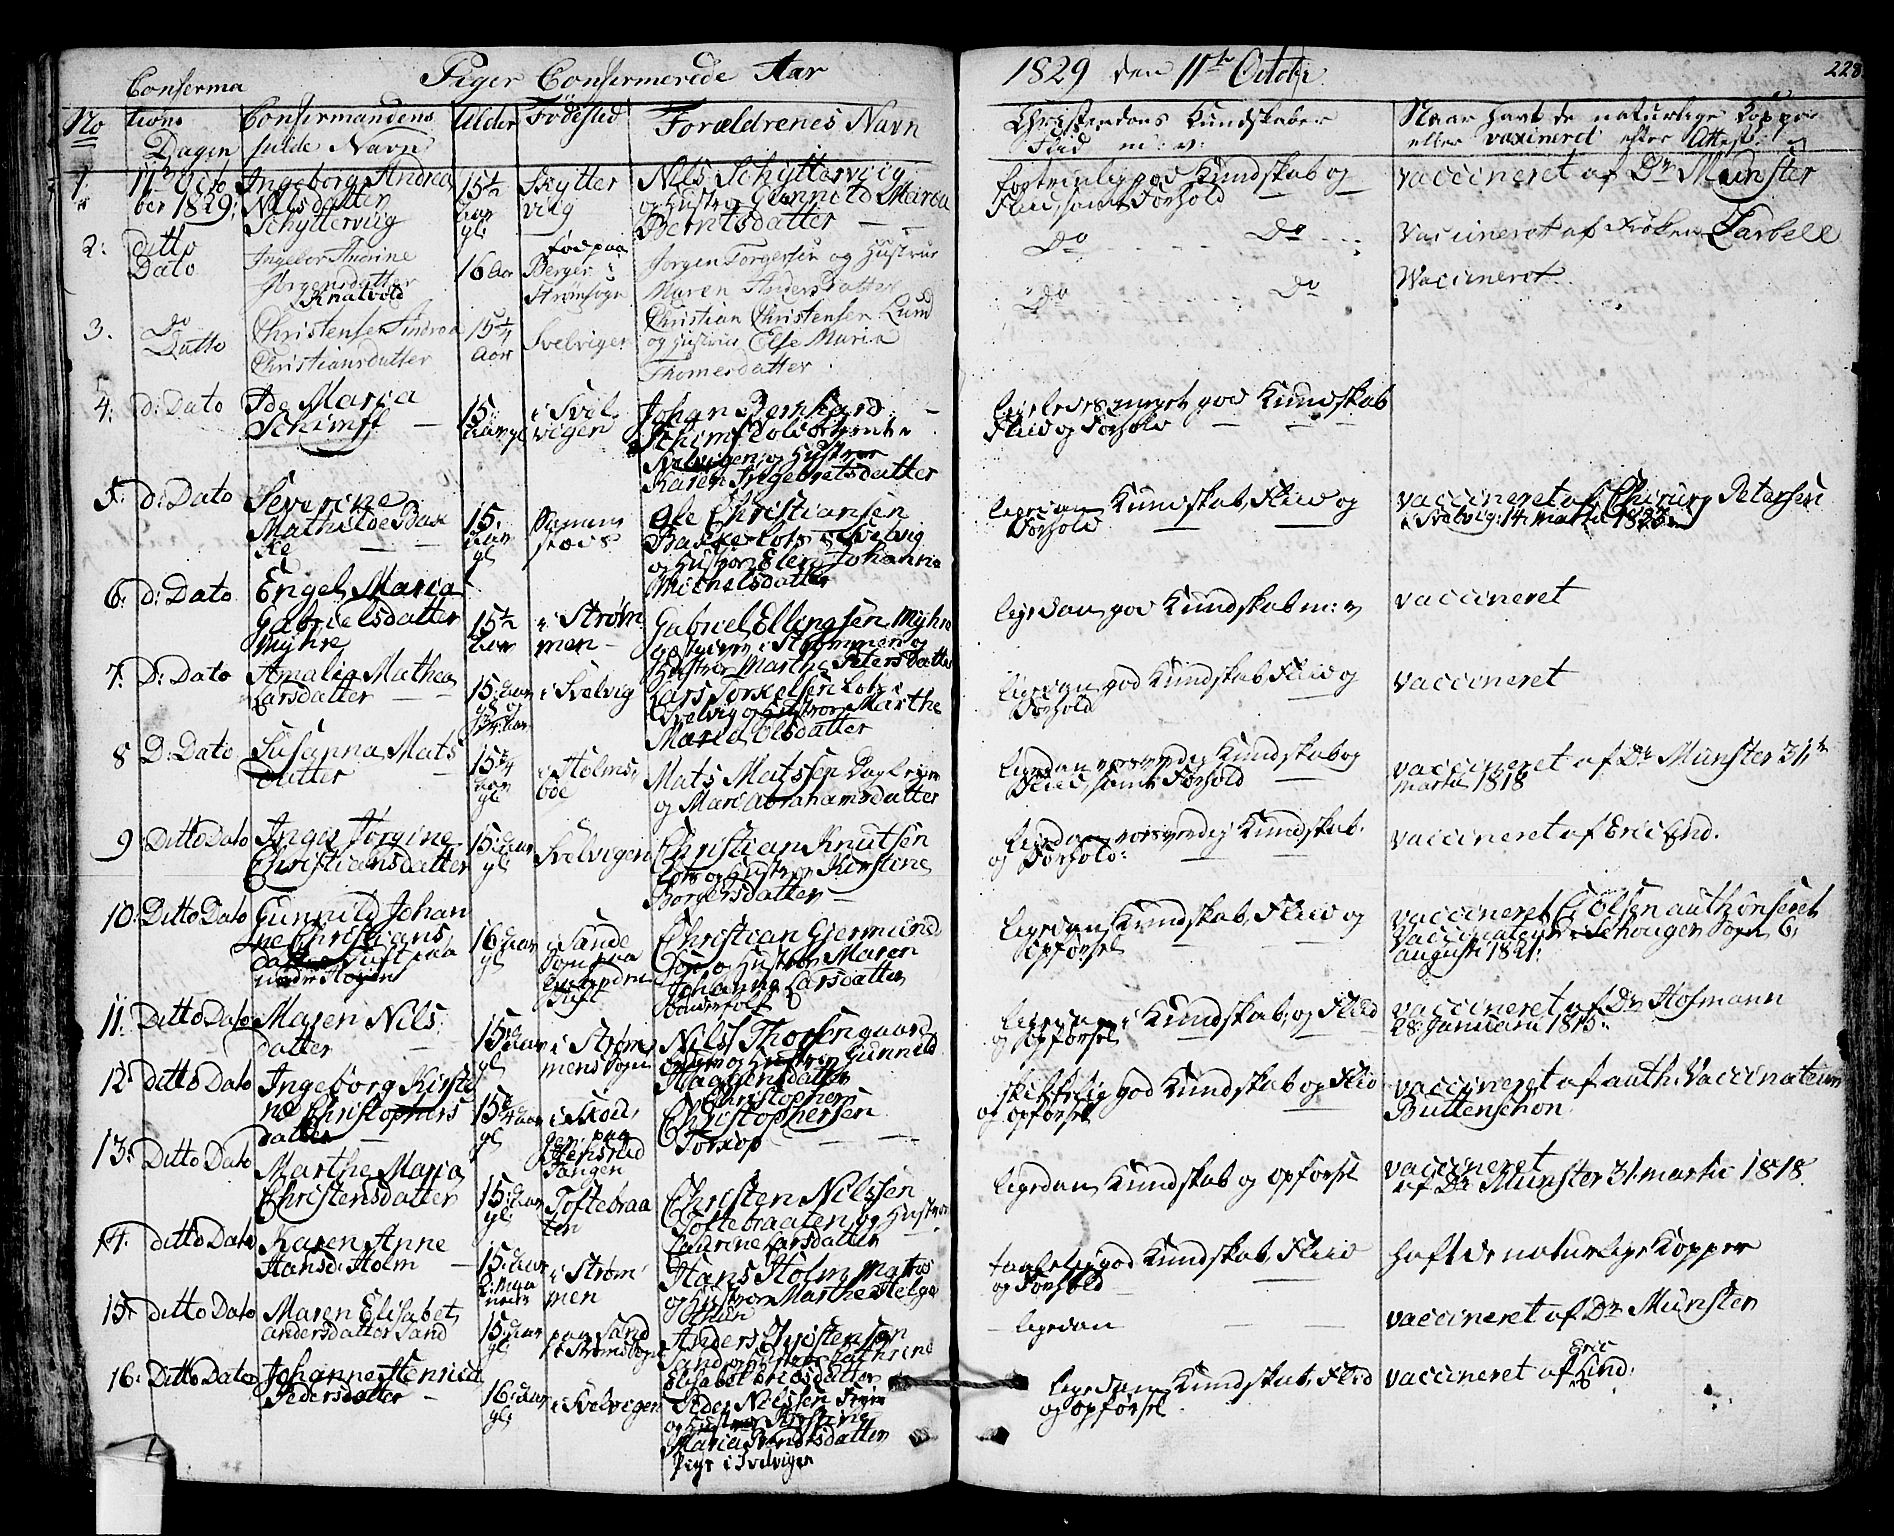 Piger Confirmerede Aar 1829 den 11te Octobr.
228
No
Confirma
tions
Dagen
Confirmandens
fulde Navn
Alder
Fødested
Forældrenes Navn
Christendoms Kundskaber
Flid m: v:
Naar havt de naturlige Kopper
eller vaxineret efter Attest:
1.
11te Octo
ber 1829:
Ingeborg Andrea
Nilsdatter
Schyttervug
15½
Aar
gl:
Skytter
viig
Nils Schyttervug
og Hustroe Gunnild Maria
Berntsdatter
Kundskab og
Flid, samt Forhold
vaccineret af Dr Munster
2:
ditto
Dato
Ingebor Andrine
Jörgensdatter
Knatvold
16 Aar
fød paa
Berger i
Strømsogn
Jørgen Torgersen og Hustrue
Maren Andersdatter
Do Do
Vaccineret af Frøken Zarbell
3.
Do
Datto
Christense Andrea
Christiansdatter
15¼
Aar
Svelvigen
Christian Christensen Lund
og Hustrue Else Maria
Thomesdatter
Do Do
Vaccineret
4:
d: Dato
Ide Maria
Schimff
15:
Aar gl
i Svel
vigen
Johan Bernhard
Schimf
Svelvigen og Hustroe
Karen Ingebretsdatter
ligeledes meget god Kundskab
Fliid og Forhold
5:
d: Dato
Severine
Mathilde Bak
ke
15:
Aar
gl
Samme
stæds
Ole Christiansen
Bakke Lots i Svelvig
og Hustroe Elen Johanna
Michelsdatter
ligedan Kundskab, Fliid og
Forhold
vaccineret af Chirurg Petersen
i Svelvig: 14 martii 1825
6:
d: Dato
Engel Maria
Gabrielsdatter
Myhre
15½
Aar
i Strøm
men
Gabriel Ellingsen Myhre
i Strømmen og
Hustroe Marthe Petersdatter
ligedan god Kundskab m: v
vaccineret
7:
D: Dato
Amalia Mathea
Larsdatter
15: Aar
gl og
¾ Aar
i Svelvig
Lars Torkelsen Lots i
Svelvig og Hustroe Marthe
Maria Olsdatter
ligedan god Kundskab Fliid og
Forhold
vaccineret
8
D: Dato
Susanna Mats
datter
15¾
Aar
gl
i Holms
boe
Mats Matssen Dagleier
og Mari Abrahamsdatter
ligedan forsvarlig Kundskab og
Fliid, samt Forhold
vaccineret af Dr Munster 31te
martii 1818
9
Ditto Dato
Inger Jørgine
Christiansdatter
15: Aar
gl
Svelvigen
Christian Knutsen
Lots og Hustroe Kirstine
Borgersdatter
ligedan forsvarlig Kundskab.
og Forhold:
vaccineret af Eric Lind.
10:
Ditto Dato
Gunnild Johan
ne Christians
datter Tuft paa
nedre Hogen
16: Aar
gl
i Sande
Sogn paa
Tuft
Christian Gjermund
sen og Hustroe Maren
Johanna Larsdatter
Bonderfolk
ligedan Kundskab, Fliid og
opførsel
vaccineret C Olsen authoriseret
Vaccinateur i Schouger Sogn 6
augusti 1821:
11:
Ditto Dato
Maren Nils
datter
15: Aar
gl
i Strøm
mens Sogn
Nils Thorsen gaard
og Hustroe Gunnild
Haagensdatter
ligedan i Kundskab, og Fliid
og opførsel
vaccineret af Dr Hofmann
28 Januarii 1815:
12
Ditto Dato
Ingeborg Kirsti
ne Christophers
datter
15¾ Aar
gl
i Skou
ger paa
Tangen
Christopher
Christophersen
Torsop
skikkelig god Kundskab og Fliid
og opførsel
vaccineret af auth: Vaccinateur
Buttenschon
13:
Ditto Dato
Marthe Maria
Christensdatter
15: Aar
gl:
Toftebraa
ten
Christen Nilssen
Toftebraaten og Hustroe
Laurine Larsdatter
ligedan Kundskab og opførsel
vaccineret
af Dr Munster 31 martii 1818
14:
ditto Dato
Karen Anne
Hansd: Holm
15: Aar
2: maa
neder
i Strøm
men
Hans Holm Matros
og Hustroe Marthe Helge
taalelig god Kundskab, Fliid
og Forhold
haft de naturlige Kopper
15:
ditto Dato
Maren Elisabet
andersdatter Sand
15: Aar
gl:
paa Sand
i Strømsogn
Anders Christensen
Sand og Hustroe Cathrine
Elisabet Ericsdatter
ligedan
vaccineret af Dr Munster
16:
Ditto Dato
Johanne Henrica
Pedersdatter
16: Aar
gl:
i Svelvigen
Peder Nilssen
og Hustroe Kirstine
Maria Berntsdatter
Pige i Svelvigen
ligedan Kundskab, Fliid
og opførsel
vaccineret af Eric Lind: